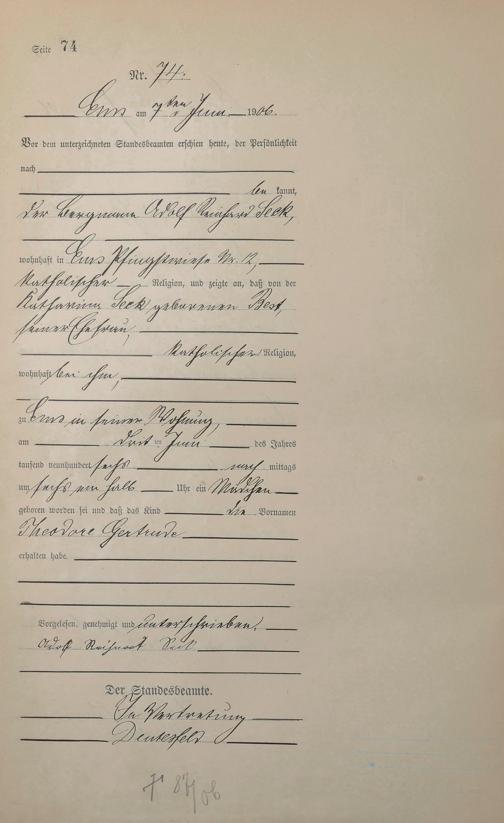 Seite 74
Nr. 74.
Ems am 7ten Juni 1906.
Vor dem unterzeichneten Standesbeamten erschien heute, der Persönlichkeit
nach
be kannt,
der Bergmann Adolf Reinhard Seck,
wohnhaft in Ems Pfingstwiese Nr. 12,
katholischer Religion, und zeigte an, daß von der
Katharina Seck geborenen Best,
seiner Ehefrau,
katholischer Religion,
wohnhaft bei ihm,
zu Ems in seiner Wohnung,
am dritten Juni des Jahres
tausend neunhundert sechs nach mittags
um sechs ein halb Uhr ein Mädchen
geboren worden sei und daß das Kind die Vornamen
Theodore Gertrude
erhalten habe.
Vorgelesen, genehmigt und unterschrieben.
Adolf Reinhard Seck
Der Standesbeamte.
In Vertretung
† 87/06